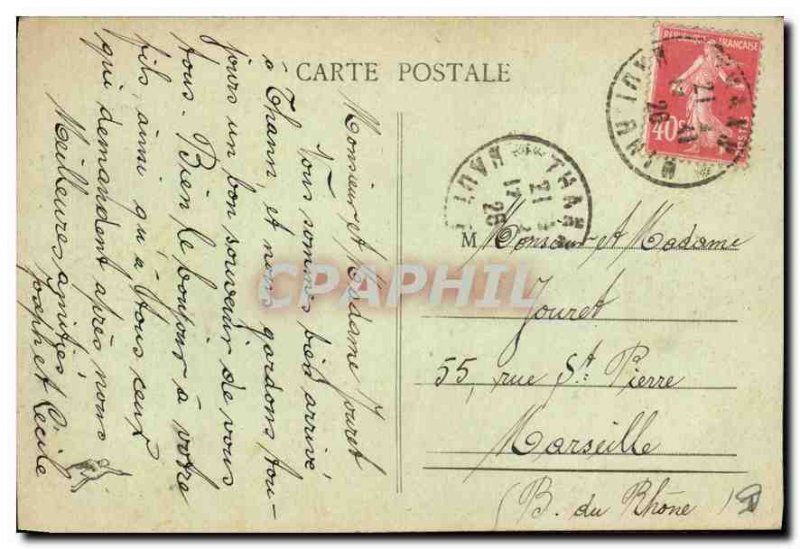 CARTE POSTALE
Monsieur et Madame Jouret
Nous sommes bien arrivé
à Thann, et nous gardons tou-
jours un bon souvenir de vous
tous. Bien le bonjour à votre
fils, ainsi qu'à tous ceux
qui demandent après nous
Meilleures amitiés
Joseph et Cécile
REPUBLIQUE FRANÇAISE
40
POSTES
THANN
HAUT RHIN
21
17 4
26
THANN
HAUT
21
17
26
M Monsieur et Madame
Jouret
55, rue St. Pierre
Marseille
(B. du Rhône)
CPAPHIL